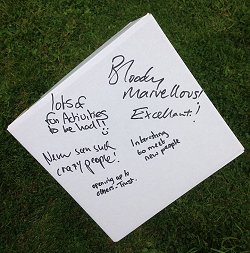 lots of
fun Activities
to be had!!
Never seen such
crazy people!
opening up to
others - Trust.
Bloody
Marvellous!
Excellant!
Interesting
to meet
new people